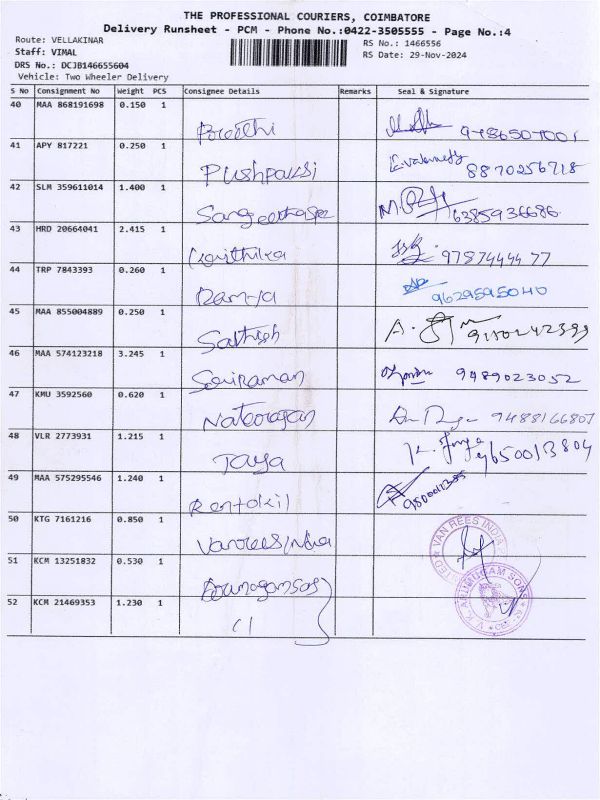 THE PROFESSIONAL COURIERS, COIMBATORE
Delivery Runsheet - PCM - Phone No.:0422-3505555 - Page No.:4
Route: VELLAKINAR RS No.: 1466556
Staff: VIMAL RS Date: 29-Nov-2024
DRS No.: DCJB146655604
Vehicle: Two Wheeler Delivery
S No Consignment No Weight PCS Consignee Details Remarks Seal & Signature
40 MAA 868191698 0.150 1
Preethi
41 APY 817221 0.250 1
8870256718
42 SLM 359611014 1.400 1
6385936686
43 HRD 20664041 2.415 1
9787444477
44 TRP 7843393 0.260 1
Ramya 9629595040
45 MAA 855004889 0.250 1
Sathish
46 MAA 574123218 3.245 1
Sairaman 9489023052
47 KMU 3592560 0.620 1
Natarajan 9488166807
48 VLR 2773931 1.215 1
Jaya 9650013804
49 MAA 575295546 1.240 1
Rentokil
50 KTG 7161216 0.850 1
Vanrees India VAN REES INDIA
51 KCM 13251832 0.530 1
V.K. ARUMUGAM SONS
52 KCM 21469353 1.230 1